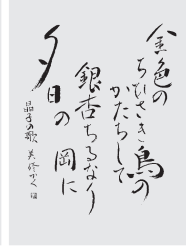 金色の
ちひさき鳥の
かたちして
銀杏ちるなり
夕日の 岡に
晶子の歌 かく